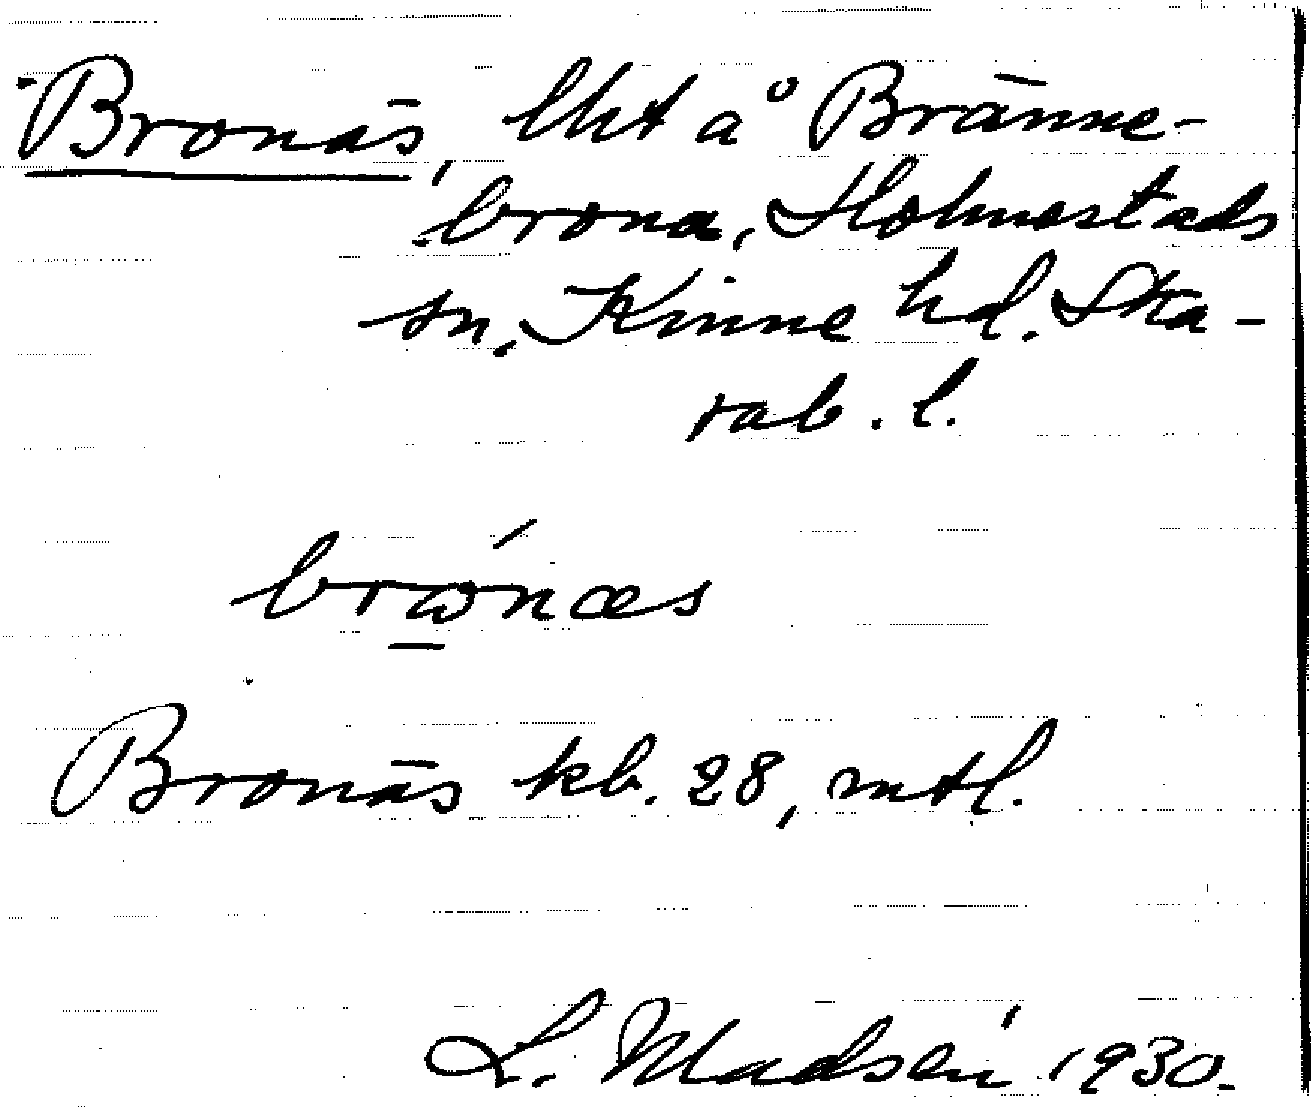 Bronäs, lht å Bränne-
brona, Holmestads
sn, Kinne hd. Ska-
rab. l.
brώnæs
Bronäs kb. 28, mtl.
L. Madsén 1930.